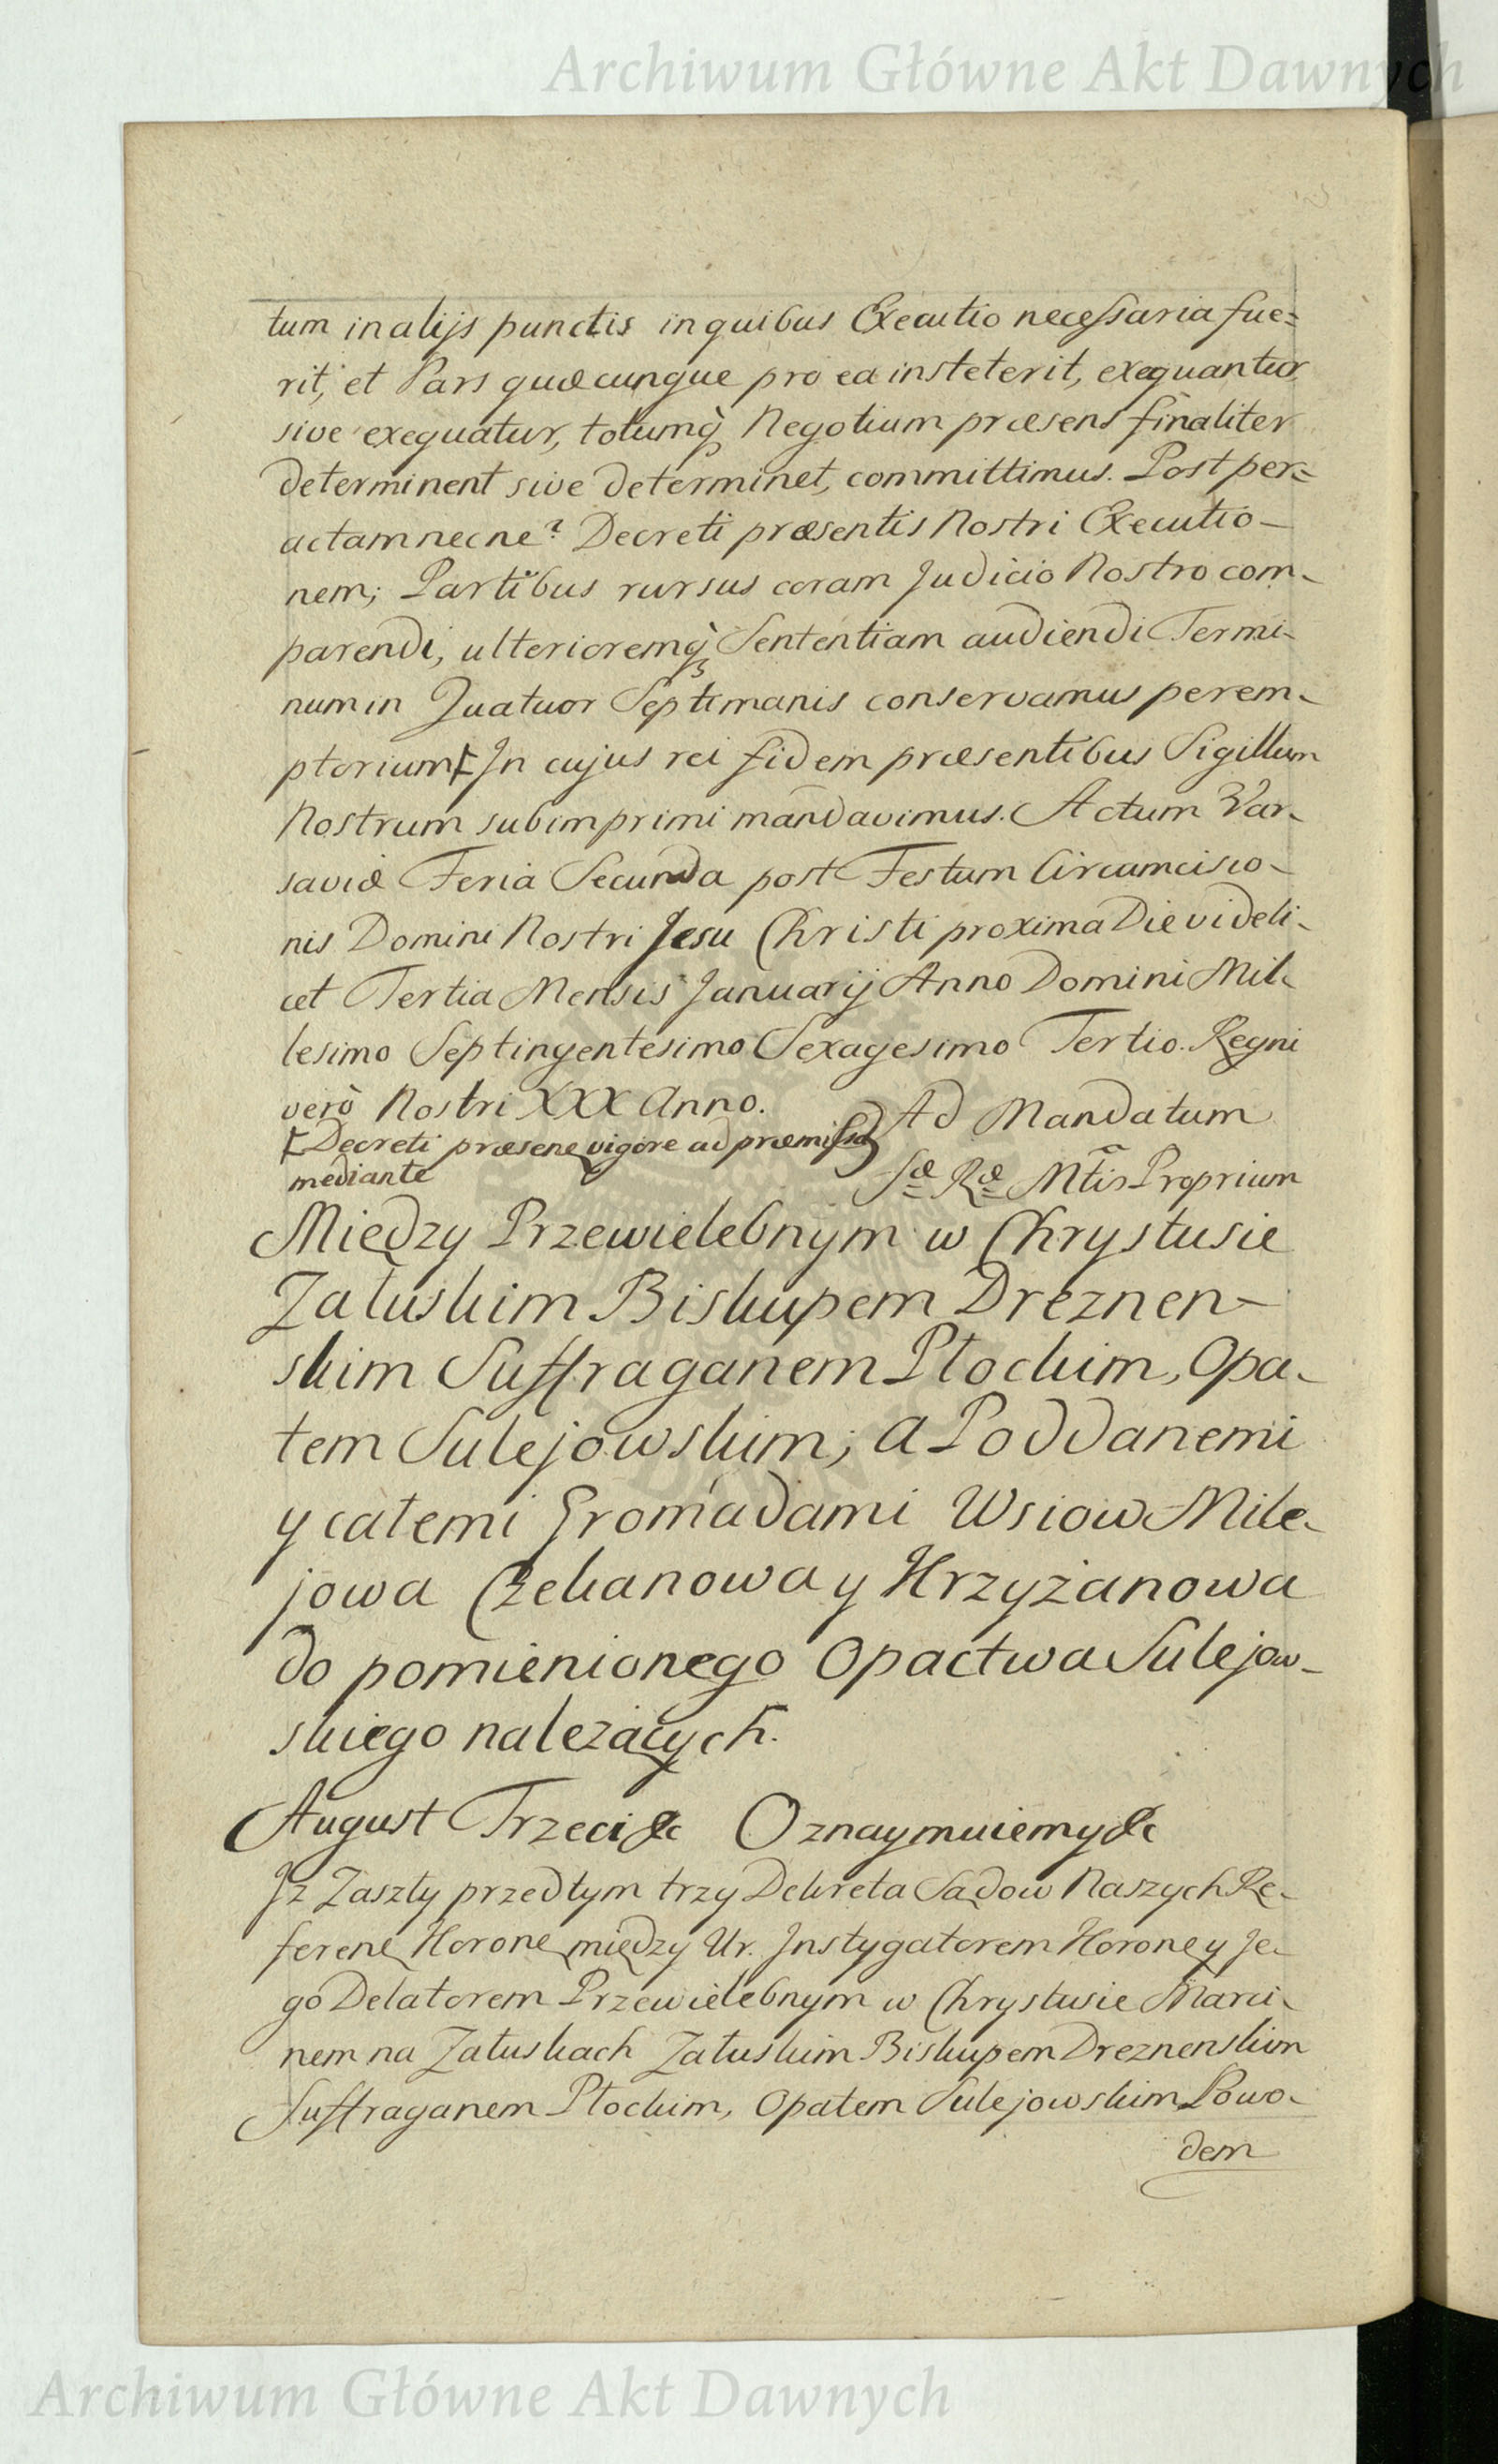 Archiwum Główne Akt Dawnych
tum in alijs punctis in quibus Executio necessaria fue=
rit, et Pars quæcunque pro ea institerit, exequantur
sive exequatur, totumq̀ Negotium præsens finaliter
determinent sive determinet, committimus. Post per=
actam necne? Decreti præsentis Nostri Executio-
nem; Partibus rursus coram Judicio Nostro com-
parendi, ulterioremq̀ Sententiam audiendi Termi-
num in Quatuor Septimanis conservamus perem-
ptorium. In cujus rei fidem præsentibus Sigillum
Nostrum subimprimi mandavimus. Actum Var-
saviæ Feria Secunda post Festum Circumcisio-
nis Domini Nostri Jesu Christi proxima Die videli-
cet Tertia Mensis Januarij Anno Domini Mil-
lesimo Septingentesimo Sexagesimo Tertio. Regni
verò Nostri XXX Anno.
Decreti præsene vigore ad præmissa
mediante
Ad Mandatum
Sæ Ræ Mtis Proprium
Między Przewielebnym w Chrystusie
Załuskim Biskupem Drezneń-
skim Suffraganem Płockim, Opa-
tem Sulejowskim; a Poddanemi
y całemi Gromadami Wsiow Mile-
jowa Czekanowa y Krzyżanowa
do pomienionego Opactwa Sulejow-
skiego należących.
August Trzeci &c Oznaymuiemy &c
Jż Zaszły przedtym trzy Dekreta Sądow Naszych Re-
feren. Koron. między Ur. Instygatorem Koron. y Je-
go Delatorem Przewielebnym w Chrystusie Marci-
nem na Załuskach Załuskim Biskupem Drezneńskim
Suffraganem Płockim, Opatem Sulejowskim Powo-
dem
Archiwum Główne Akt Dawnych